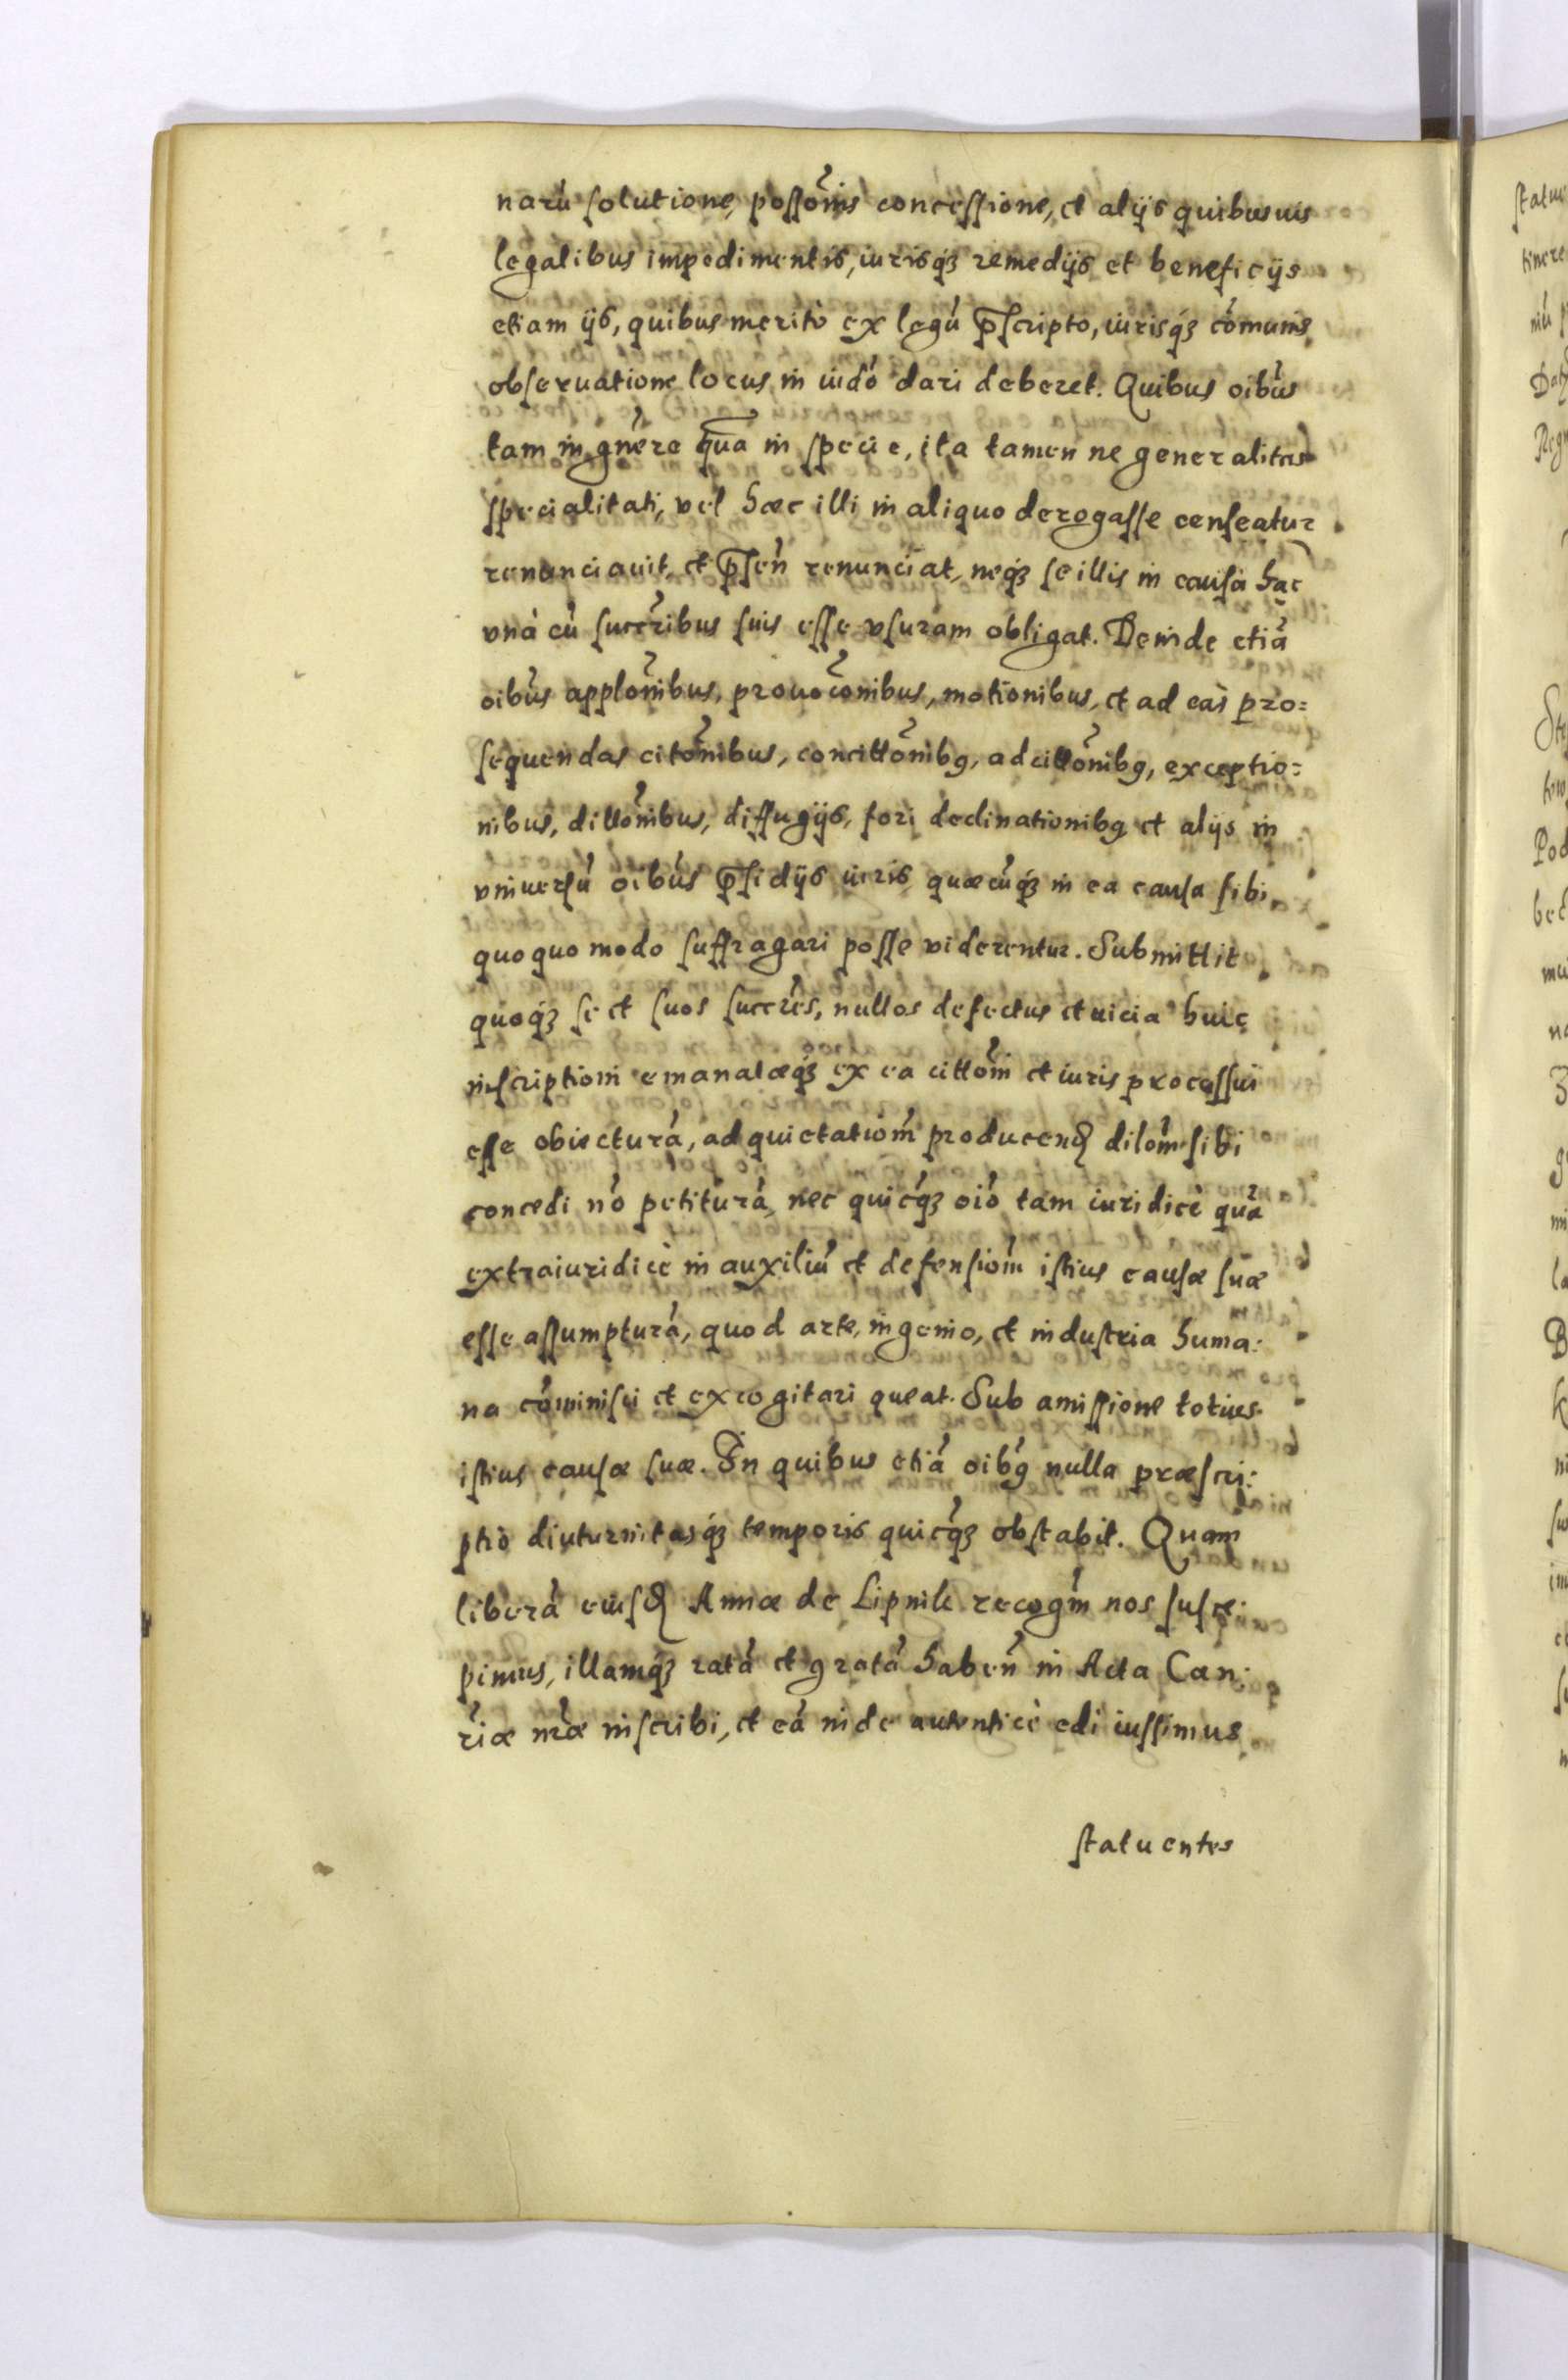 narú solutione, possõnis concessione, et alijs quibusuis
legalibus impedimentis, iurisq́ʒ remedijs et beneficijs
etiam ijs, quibus meritò ex legú p̃scripto, iurisq́ʒ cómunis
obseruatione locus in iudó dari deberet. Quibus oíbus
tam in gńere qũa in specie, ita tamen ne generalitas
specialitati, vel hæc illi in aliquo derogasse censeatur
renunciauit, et p̃seń renunciat, neq́ʒ se illis in causa hac
vnà cú succribus suis esse vsuram obligat. Deinde etiá
oíbus applõnibus, prouocõnibus, motionibus, et ad eas pro=
sequendas citõnibus, concittõnibꝯ, adcittõnibꝯ, exceptio=
nibus, dillõnibus, diffugijs, fori declinationibꝯ et alijs in
vniuersú oíbus p̃sidijs iuris, quæcúq́ʒ in ea causa sibi
quoquo modo suffragari posse viderentur. Submittit
quoq́ʒ se et suos succŕes, nullos defectus et uicia huic
inscriptioni emanatæq́ʒ ex ea cittõni et iuris processui
esse obiecturá, ad quietatioḿ producenꝺ dilõm sibi
concedi nó petiturá, nec quicq́ʒ oíó tam iuridicè quã
extraiuridicè in auxiliú et defensioḿ istius causæ suæ
esse assumpturá, quod arte, ingenio, et industria huma:
na cóminisci et excogitari queat. Sub amissione totius
istius causæ suæ. In quibus etiá oíbꝯ nulla præscri:
ptio diuturnitasq́ʒ temporis quicq́ʒ obstabit. Quam
liberá eiusꝺ Annæ de Lipnik recogḿ nos susce:
pimus, illamq́ʒ ratá et gratá habeń in Acta Can:
riæ nŕæ inscribi, et eá inde autenticè edi iussimus
statuentes